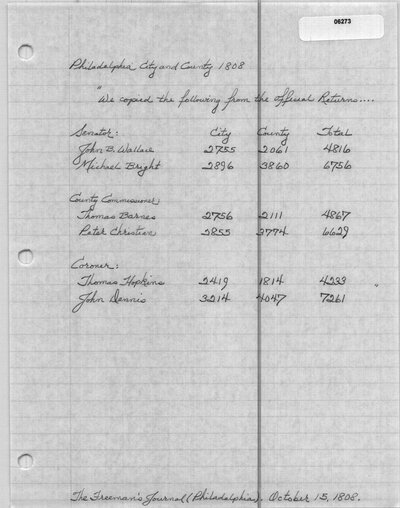 06273
Philadelphia City and County 1808
"We copied the following from the official Returns....
Senator: City County Total
John B. Wallace 2755 2061 4816
Michael Bright 2896 3860 6756
County Commissioner
Thomas Barnes 2756 2111 4867
Peter Christian 2855 3774 6629
Coroner:
Thomas Hopkins 2419 1814 4233
John Dennis 3214 4047 7261 "
The Freeman's Journal (Philadelphia). October 15, 1808.